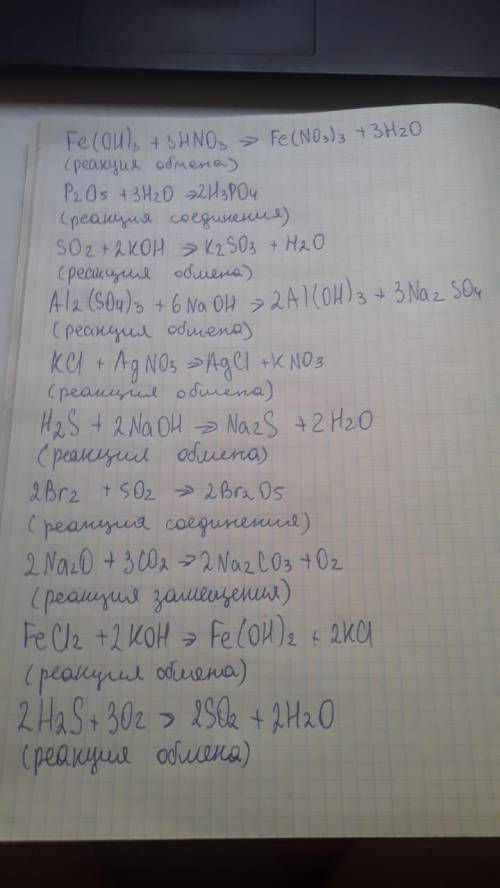 Fe(OH)₃ + 3HNO₃ => Fe(NO₃)₃ + 3H₂O
(реакция обмена)
P₂O₅ + 3H₂O => 2H₃PO₄
(реакция соединения)
SO₂ + 2KOH => K₂SO₃ + H₂O
(реакция обмена)
Al₂(SO₄)₃ + 6NaOH => 2Al(OH)₃ + 3Na₂SO₄
(реакция обмена)
KCl + AgNO₃ => AgCl + KNO₃
(реакция обмена)
H₂S + 2NaOH => Na₂S + 2H₂O
(реакция обмена)
2Br₂ + 5O₂ => 2Br₂O₅
(реакция соединения)
2Na₂O + 3CO₂ => 2Na₂CO₃ + O₂
(реакция замещения)
FeCl₂ + 2KOH => Fe(OH)₂ + 2KCl
(реакция обмена)
2H₂S + 3O₂ => 2SO₂ + 2H₂O
(реакция обмена)